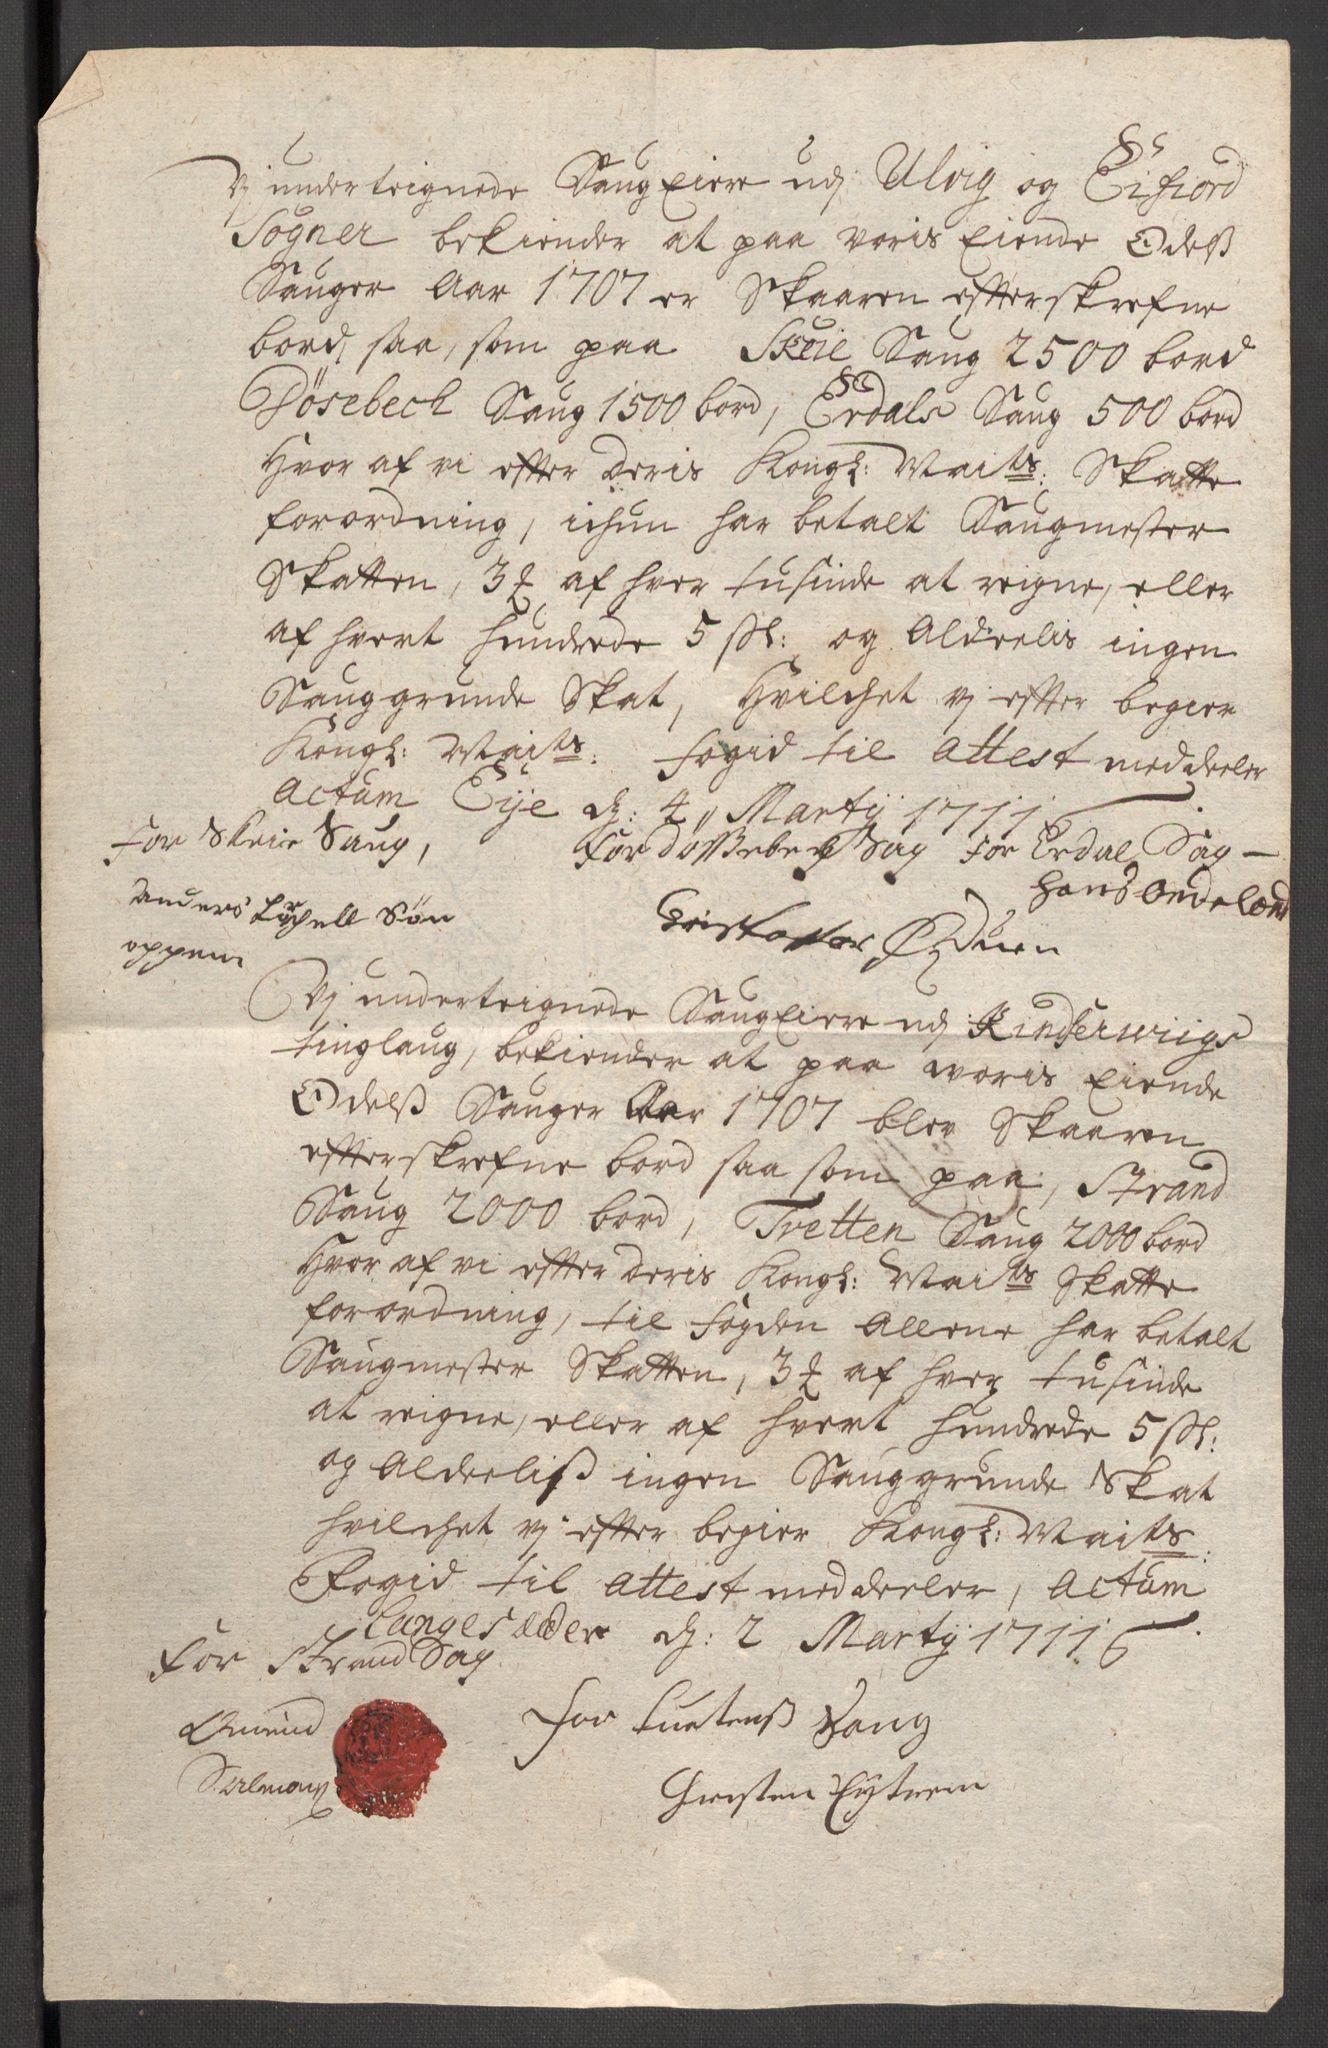 Vj underteignede Saug Eiere udj Ulvig og Eifiord
Sogner bekiender at paa voris Eiende Odelß
Sauger Aar 1707 er Skaaren efterskrefne
bord, saa, som paa Skeie Saug 2500 bord
Dösebech Saug 1500 bord, Erdals Saug 500 bord
Hvor af vi efter deris Kongl: Maits: Skatte
forordning, ichun har betalt Saugmester
Skatten, 3 af hver tusinde at reigne, eller
af hvert hundrede 5 ßl: og Aldeelis ingen
Sauggrunde Skat, Hvilchet vj efter begier
Kongl: Maits: fogid til Attest meddeeler
Actum Eije d: 4 Martij 1711
For Skeie Saug, For Dösßebech Sag For Erdal Sag
Anders Schell Sön Hans
oppem Cristoffer
Vj underteignede Saug Eiere udj Kinserwiigs
tinglaug, bekiender at paa woris Eiende
Odelß Sauger Aar 1707 blev Skaaren
efterskrefne bord saa som paa, Strand
Saug 2000 bord, Tvetten Saug 2000 bord
Hvor af vi efter deris Kongl: Maits Skatte
forordning, til fogden Allene har betalt
Saugmester Skatten, 3 af hver tusinde
at reigne, eller af hvert hundrede 5 ßl:
og Aldeeliß ingen Sauggrunde Skat
hvilchet vj efter begier Kongl: Maits:
Fogid til Attest meddeeler, Actum
Langesæder d: 2 Martij 1711
For Strand Sag
Omund For tuetenß Saug
Christen Eÿtrem